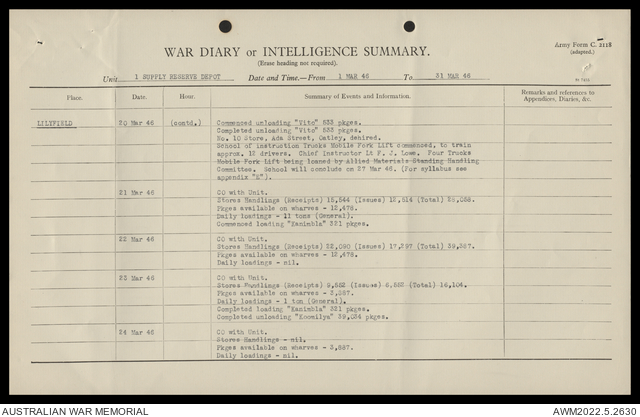 Army Form C. 2118
(adapted.)
WAR DIARY or INTELLIGENCE SUMMARY.
(Erase heading not required).
Unit 1 SUPPLY RESERVE DEPOT Date and Time.—From 1 MAR 46 To 31 MAR 46
Place. Date. Hour. Summary of Events and Information. Remarks and references to Appendices, Diaries, &c.
LILYFIELD 20 Mar 46 (contd.) Commenced unloading "Vito" 533 pkges.
Completed unloading "Vito" 533 pkges.
No. 10 Store, Ada Street, Oatley, dehired.
School of instruction Trucks Mobile Fork Lift commenced, to train
approx. 12 drivers. Chief Instructor Lt F. J. Lowe. Four Trucks
Mobile Fork Lift being loaned by Allied Materials Standing Handling
Committee. School will conclude on 27 Mar 46. (For syllabus see
appendix "E").
21 Mar 46 CO with Unit.
Stores Handlings (Receipts) (Issues) (Total)
Pkges available on wharves - 12,478.
Daily loadings - 11 tons (General).
Commenced loading "Kanimbla" 321 pkges.
22 Mar 46 CO with Unit.
Stores Handlings (Receipts) 22,090 (Issues) 17,297 (Total) 39,387.
Pkges available on wharves - 12,478.
Daily loadings - nil.
23 Mar 46 CO with Unit.
Stores Handlings (Receipts) (Issues) (Total) 16,104.
Pkges available on wharves -
Daily loadings - 1 ton (General).
Completed loading "Kanimbla" 321 pkges.
Completed unloading "Koomilya" 39,034 pkges.
24 Mar 46 CO with Unit.
Stores Handlings - nil.
Pkges available on wharves -
Daily loadings - nil.
AUSTRALIAN WAR MEMORIAL AWM2022.5.2630